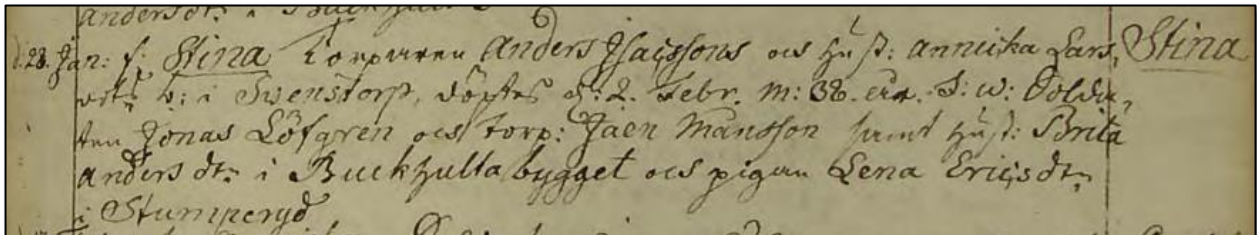 andersdtr i
d: 28. Jan: f: Stina Torparen Anders Isacssons och Hust: annicka Lars, Stina
dotr b: i Swenstorp, döptes d: 2. Febr. M: 38. år. S: w: Solda,
ten Jonas Löfgren och torp: Jaen Månsson samt Hust: Brita
anders dtr i Buckhulta bygget och pigan Lena Erics dtr
i Stumperyd